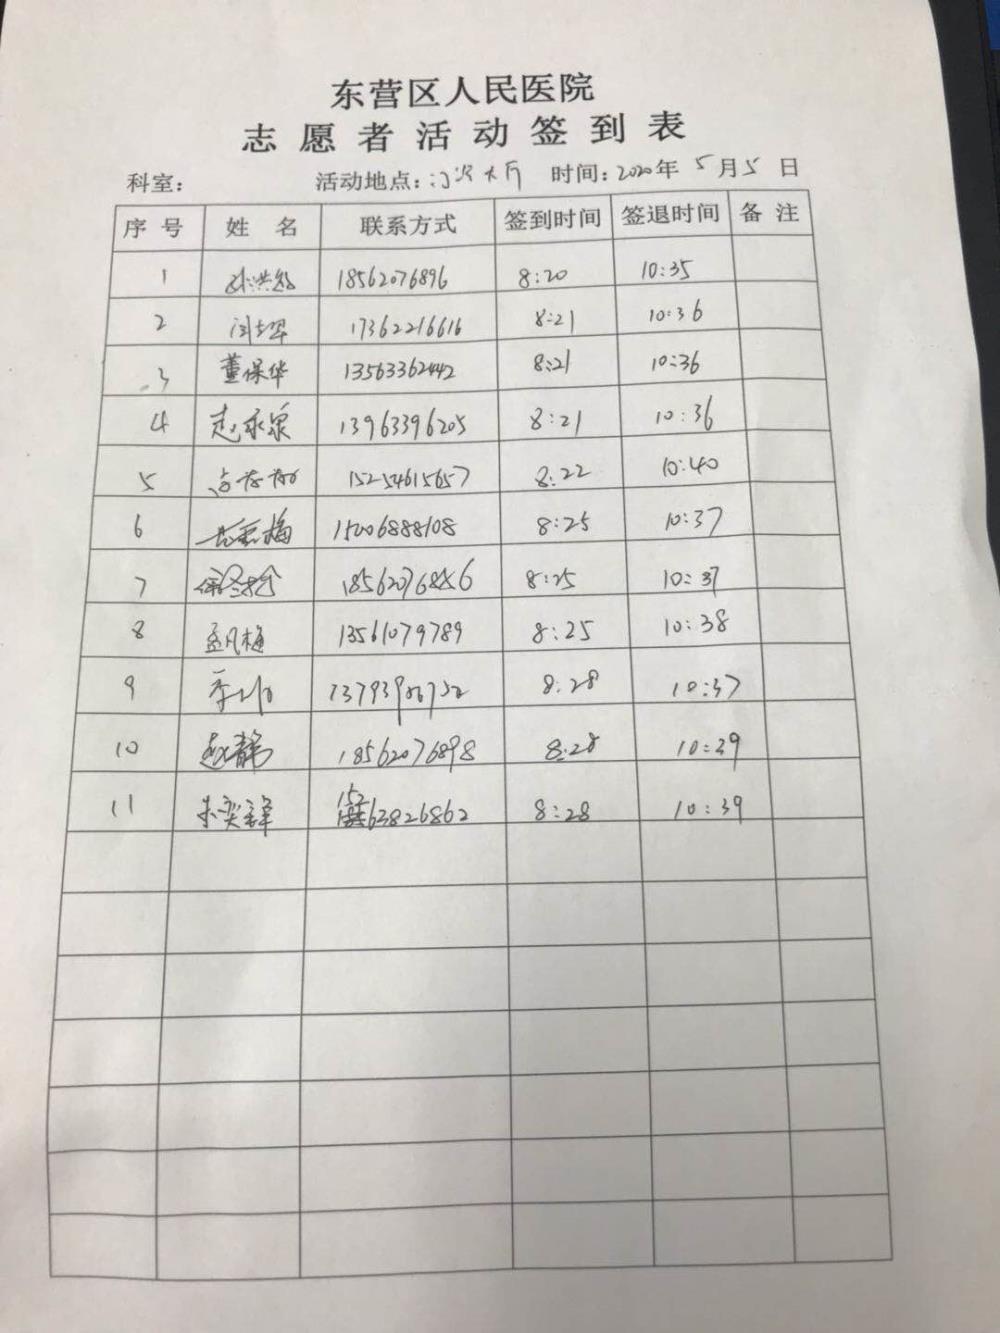 东营区人民医院
志愿者活动签到表
科室： 活动地点：门诊大厅 时间：2020年5月5日
序号 姓名 联系方式 签到时间 签退时间 备注
1 18562076896 8:20 10:35
2 17362216616 8:21 10:36
3 董保华 13563362442 8:21 10:36
4 赵永泉 13963396205 8:21 10:36
5 15254615657 8:22 10:40
6 15006888108 8:25 10:37
7 8:25 10:37
8 孟凡梅 13561079789 8:25 10:38
9 8:28 10:37
10 赵静 18562076898 8:28 10:39
11 15263826862 8:28 10:39